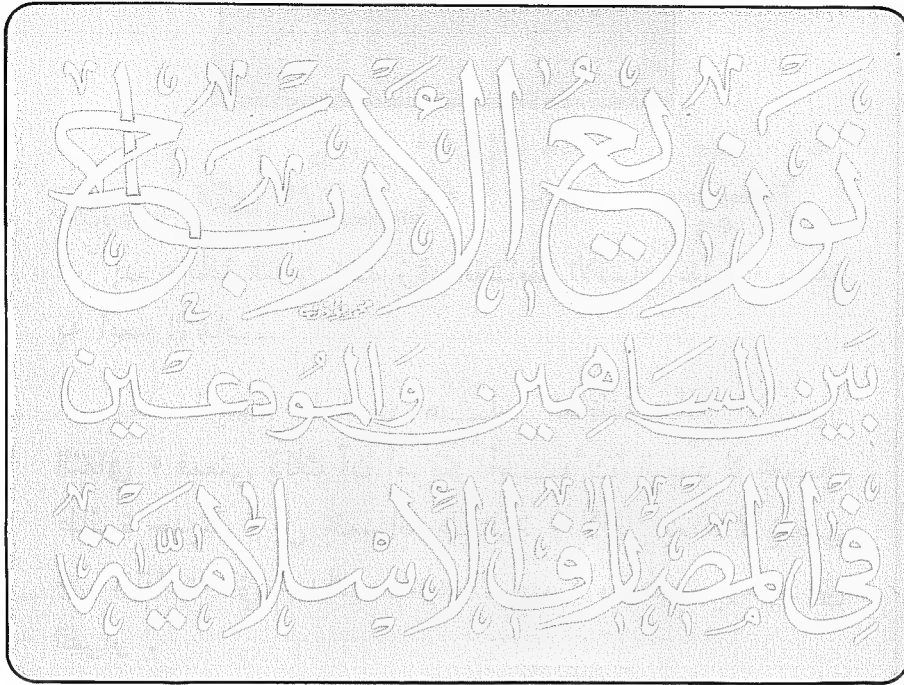 توزيع الأرباح
بَين المسَاهِمين وَالمُودعَين
فِي المصَارف الإسْلاميَّة